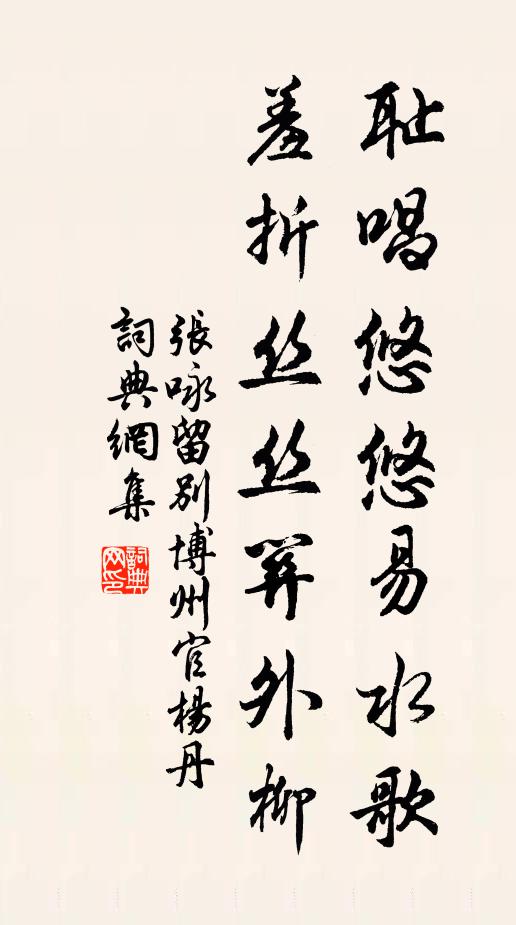 耻唱悠悠易水歌
羞折丝丝關外柳
張咏留别博州官楊丹
詞典網集
詞典网印